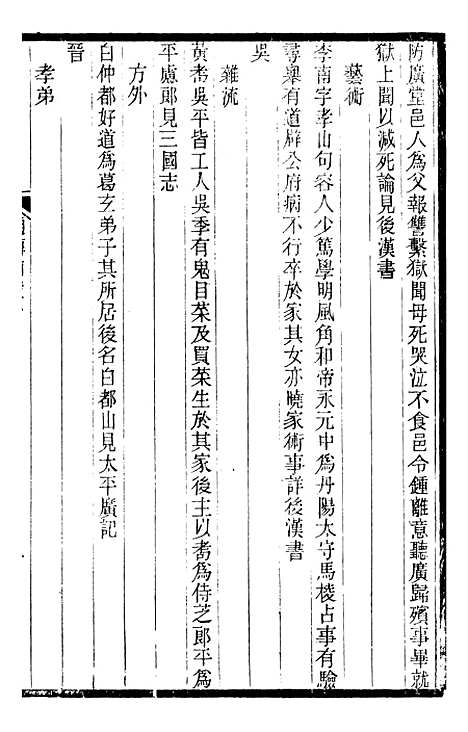 防廣堂邑人爲父報讐繫獄聞母死哭泣不食邑令鍾離意聽廣歸殯事畢就
獄上聞以減死論見後漢書
藝術
李南字孝山句容人少篤學明風角和帝永元中爲丹陽太守馬棱占事有驗
尋舉有道辟公府病不行卒於家其女亦曉家術事詳後漢書
吳
雜流
黃耉吳平皆工人吳季有鬼目菜及買菜生於其家後主以耉爲侍芝郎平爲
平慮郎見三國志
方外
白仲都好道爲葛玄弟子其所居後名白都山見太平廣記
晉
孝弟